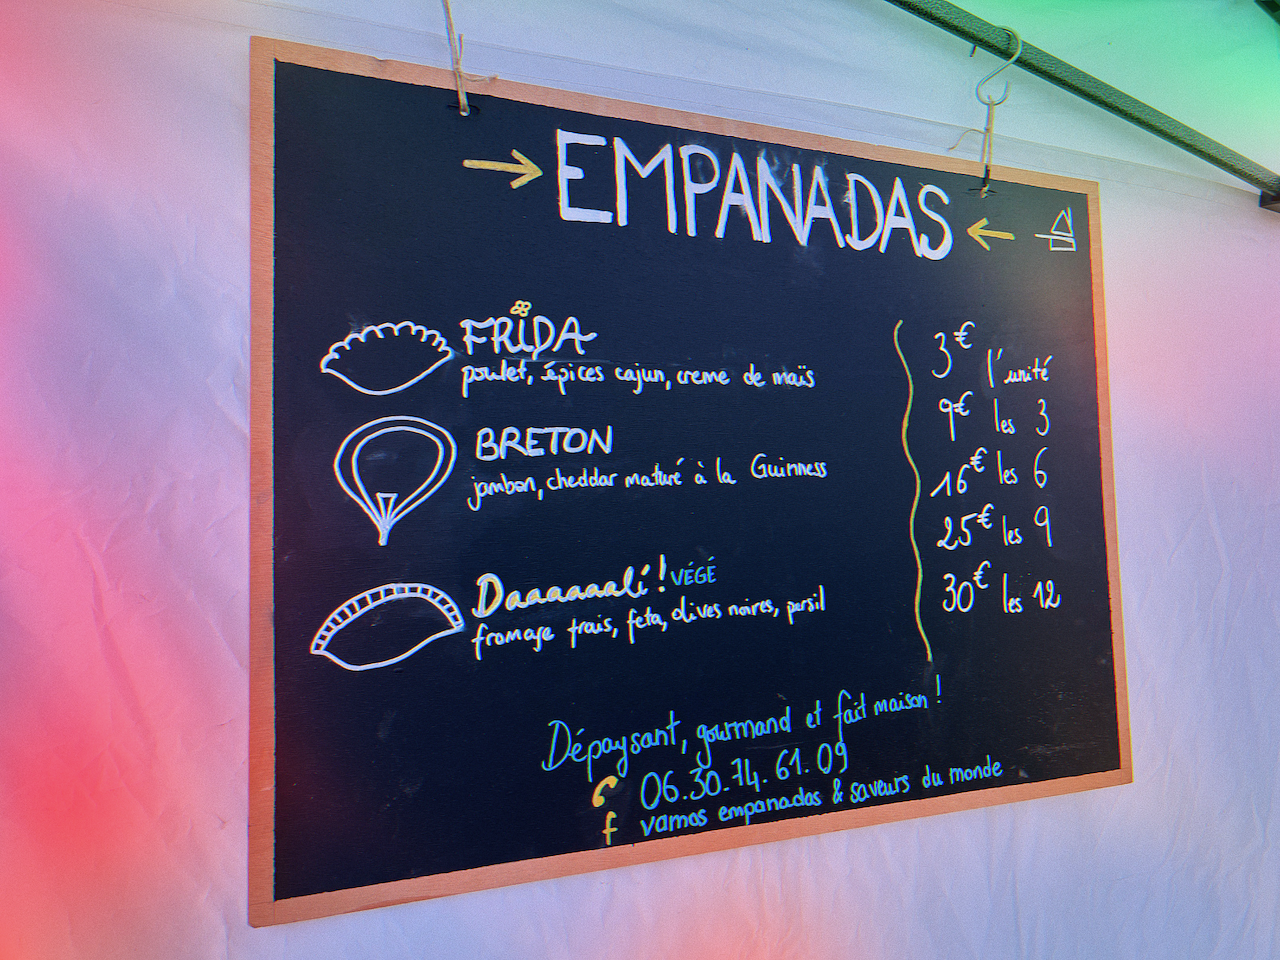 → EMPANADAS ←
FRIDA
poulet, épices cajun, creme de maïs
BRETON
jambon, cheddar maturé à la Guinness
Daaaaaalí ! VÉGÉ
fromage frais, feta, olives noires, persil
3€ l'unité
9€ les 3
16€ les 6
25€ les 9
30€ les 12
Dépaysant, gourmand et fait maison !
06.30.74.61.09
f vamos empanadas & saveurs du monde